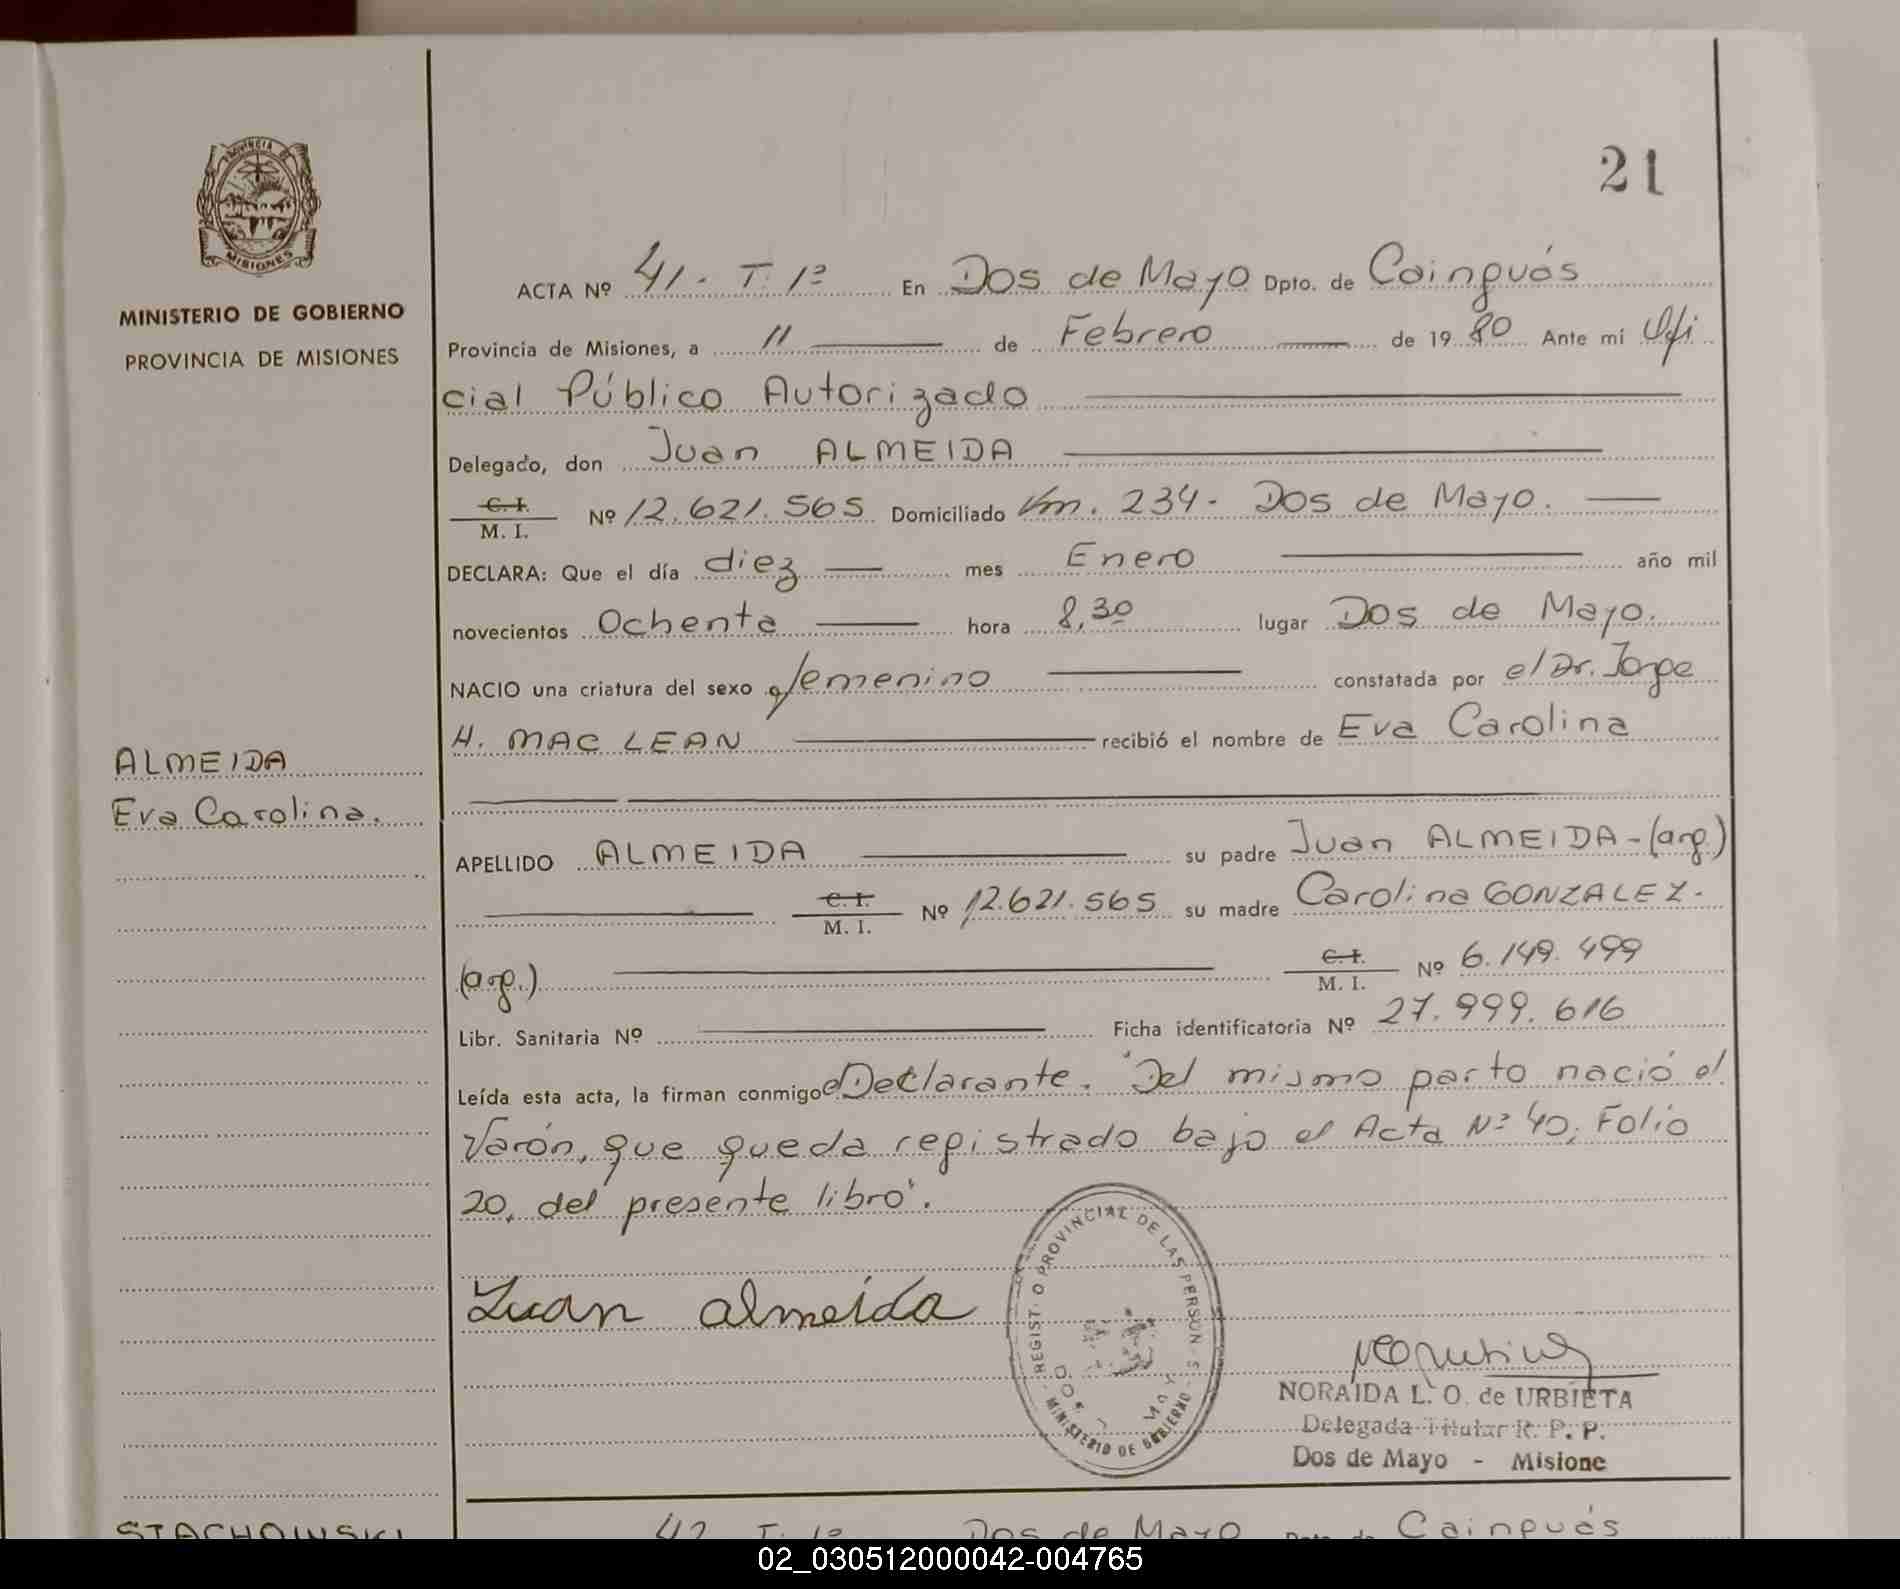 21
PROVINCIA DE
MISIONES
MINISTERIO DE GOBIERNO
PROVINCIA DE MISIONES
ACTA Nº 41. T. 1º En Dos de Mayo Dpto. de Cainguás
Provincia de Misiones, a 11 de Febrero de 1980 Ante mi Ofi
cial Público Autorizado
Delegado, don Juan ALMEIDA
C. I.
M. I. Nº 12.621.565 Domiciliado Km. 234- Dos de Mayo.
DECLARA: Que el día diez mes Enero año mil
novecientos Ochenta hora 8,30 lugar Dos de Mayo.
NACIO una criatura del sexo femenino constatada por el Dr. Jorge
H. MAC LEAN recibió el nombre de Eva Carolina
ALMEIDA
Eva Carolina.
APELLIDO ALMEIDA su padre Juan ALMEIDA-(arg.)
C. I.
M. I. Nº 12.621.565 su madre Carolina GONZALEZ.
(arg.) C. I.
M. I. Nº 6.149.499
Libr. Sanitaria Nº Ficha identificatoria Nº 27.999.616
Leída esta acta, la firman conmigo el Declarante. "Del mismo parto nació el
Varón, que queda registrado bajo el Acta Nº 40, Folio
20, del presente libro".
Juan almeida
REGIST O PROVINCIAL DE LAS PERSON S
MINISTERIO DE GOBIERNO
NORAIDA L. O. de URBIETA
Delegada Titular R. P. P.
Dos de Mayo - Misione
STACHOWSKI
42 T. 1º Dos de Mayo Dpto. de Cainguás
02_030512000042-004765